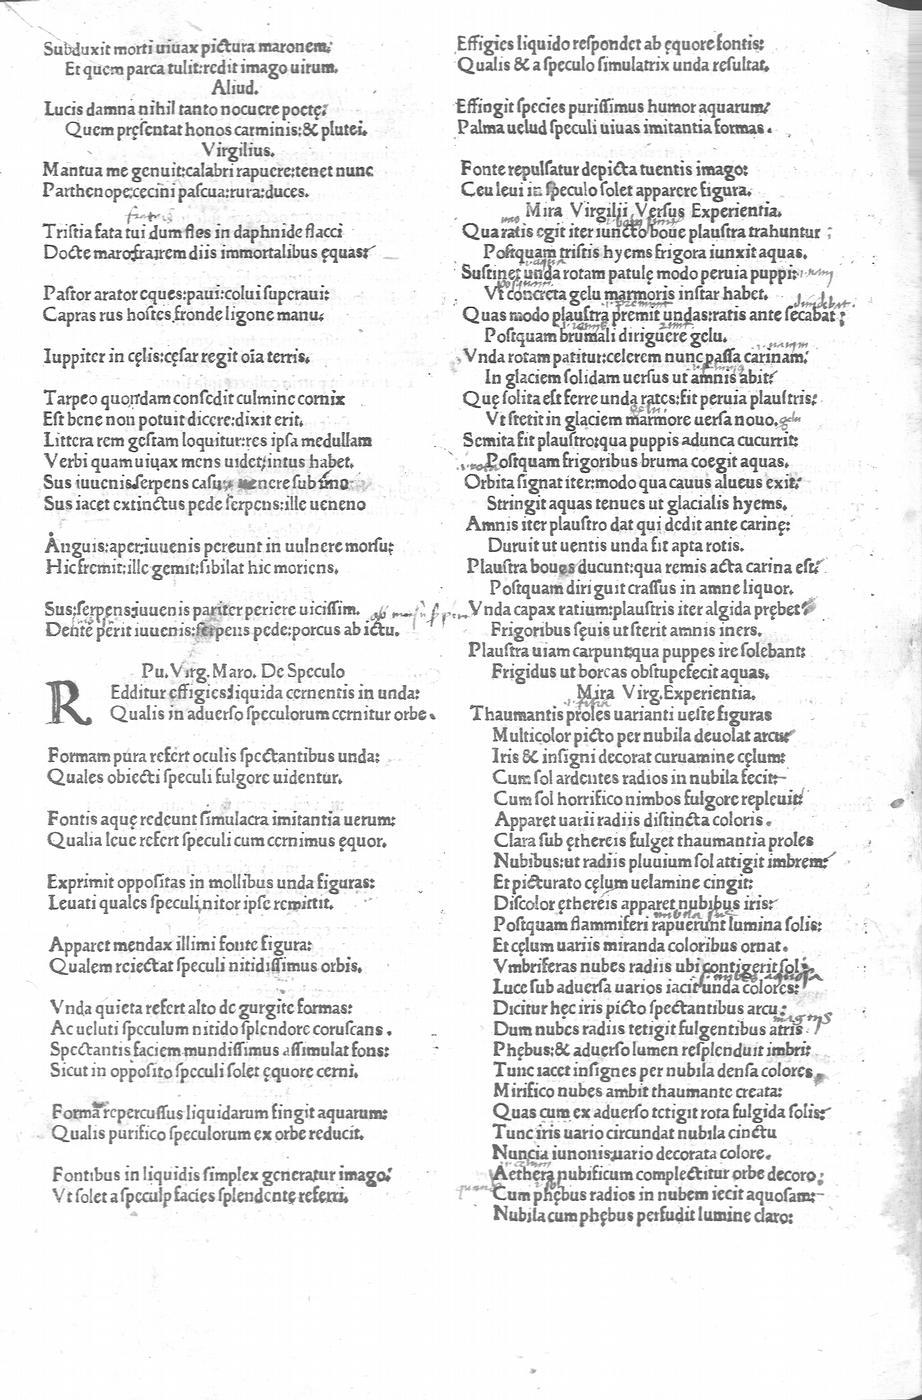 Subduxit morti uiuax pictura maronem:
Et quem parca tulit:redit imago uirum.
Aliud.
Lucis damna nihil tanto nocuere poetę:
Quem pręsentat honos carminis:& plutei.
Virgilius.
Mantua me genuit:calabri rapuere:tenet nunc
Parthenope:cecini pascua:rura:duces.
fratris
Tristia fata tui dum fles in daphnide flacci
Docte maro:fratrem diis immortalibus ęquas:
Pastor arator eques:paui:colui superaui:
Capras rus hostes fronde ligone manu.
Iuppiter in cęlis:cęsar regit oia terris.
Tarpeo quondam consedit culmine cornix
Est bene non potuit dicere:dixit erit.
Littera rem gestam loquitur:res ipsa medullam
Verbi quam uiuax mens uidet:intus habet.
Sus iuuenis.serpens casu: uenere sub imo
Sus iacet extinctus pede serpens:ille ueneno
Anguis:aper:iuuenis pereunt in uulnere morsu:
Hic fremit:ille gemit:sibilat hic moriens.
Sus:serpens:iuuenis pariter periere uicissim.
Dente perit iuuenis:serpens pede:porcus ab ictu.
Pu.Virg.Maro. De Speculo
REdditur effigies:liquida cernentis in unda:
Qualis in aduerso speculorum cernitur orbe.
Formam pura refert oculis spectantibus unda:
Quales obiecti speculi fulgore uidentur.
Fontis aquę redeunt simulacra imitantia uerum:
Qualia leue refert speculi cum cernimus ęquor.
Exprimit oppositas in mollibus unda figuras:
Leuati quales speculi nitor ipse remittit.
Apparet mendax illimi fonte figura:
Qualem reiectat speculi nitidissimus orbis.
Vnda quieta refert alto de gurgite formas:
Ac ueluti speculum nitido splendore coruscans.
Spectantis faciem mundissimus assimulat fons:
Sicut in opposito speculi solet ęquore cerni.
Forma repercussus liquidarum fingit aquarum:
Qualis purifico speculorum ex orbe reducit.
Fontibus in liquidis simplex generatur imago:
Vt solet a speculp facies splendente referri.
Effigies liquido respondet ab ęquore fontis:
Qualis & a speculo simulatrix unda resultat.
Effingit species purissimus humor aquarum:
Palma uelud speculi uiuas imitantia formas.
Fonte repulsatur depicta tuentis imago:
Ceu leui in speculo solet apparere figura.
Mira Virgilii Versus Experientia.
Qua ratis egit iter iuncto boue plaustra trahuntur
Postquam tristis hyems frigora iunxit aquas.
Sustinet unda rotam patulę modo peruia puppi:
Vt concreta gelu marmoris instar habet.
Quas modo plaustra premit undas:ratis ante secabat:
Postquam brumali diriguere gelu.
Vnda rotam patitur:celerem nunc passa carinam:
In glaciem solidam uersus ut amnis abit:
Quę solita est ferre unda rates:fit peruia plaustris:
Vt stetit in glaciem marmore uersa nouo.
Semita fit plaustro:qua puppis adunca cucurrit:
Postquam frigoribus bruma coegit aquas.
Orbita signat iter:modo qua cauus alueus exit:
Stringit aquas tenues ut glacialis hyems.
Amnis iter plaustro dat qui dedit ante carinę:
Duruit ut uentis unda fit apta rotis.
Plaustra boues ducunt:qua remis acta carina est:
Postquam diriguit crassus in amne liquor.
Vnda capax ratium:plaustris iter algida prębet
Frigoribus sęuis ut sterit amnis iners.
Plaustra uiam carpunt:qua puppes ire solebant:
Frigidus ut boreas obstupefecit aquas.
Mira Virg.Experientia.
Thaumantis proles uarianti ueste figuras
Multicolor picto per nubila deuolat arcu
Iris & insigni decorat curuamine cęlum:
Cum sol ardentes radios in nubila fecit:
Cum sol horrifico nimbos fulgore repleuit:
Apparet uarii radiis distincta coloris.
Clara sub ęthereis fulget thaumantia proles
Nubibus:ut radiis pluuium sol attigit imbrem:
Et picturato cęlum uelamine cingit:
Discolor ęthereis apparet nubibus iris:
Postquam flammiferi rapuerunt lumina solis:
Et cęlum uariis miranda coloribus ornat.
Vmbriferas nubes radiis ubi contigerit sol:
Luce sub aduersa uarios iacit unda colores:
Dicitur hęc iris picto spectantibus arcu:
Dum nubes radiis tetigit fulgentibus atris
Phębus:& aduerso lumen resplenduit imbri
Tunc iacet insignes per nubila densa colores
Mirifico nubes ambit thaumante creata:
Quas cum ex aduerso tetigit rota fulgida solis:
Tunc iris uario circundat nubila cinctu
Nuncia iunonis:uario decorata colore.
Aethera nubificum complectitur orbe decoro:
Cum phębus radios in nubem iecit aquosam:
Nubila cum phębus perfudit lumine claro: